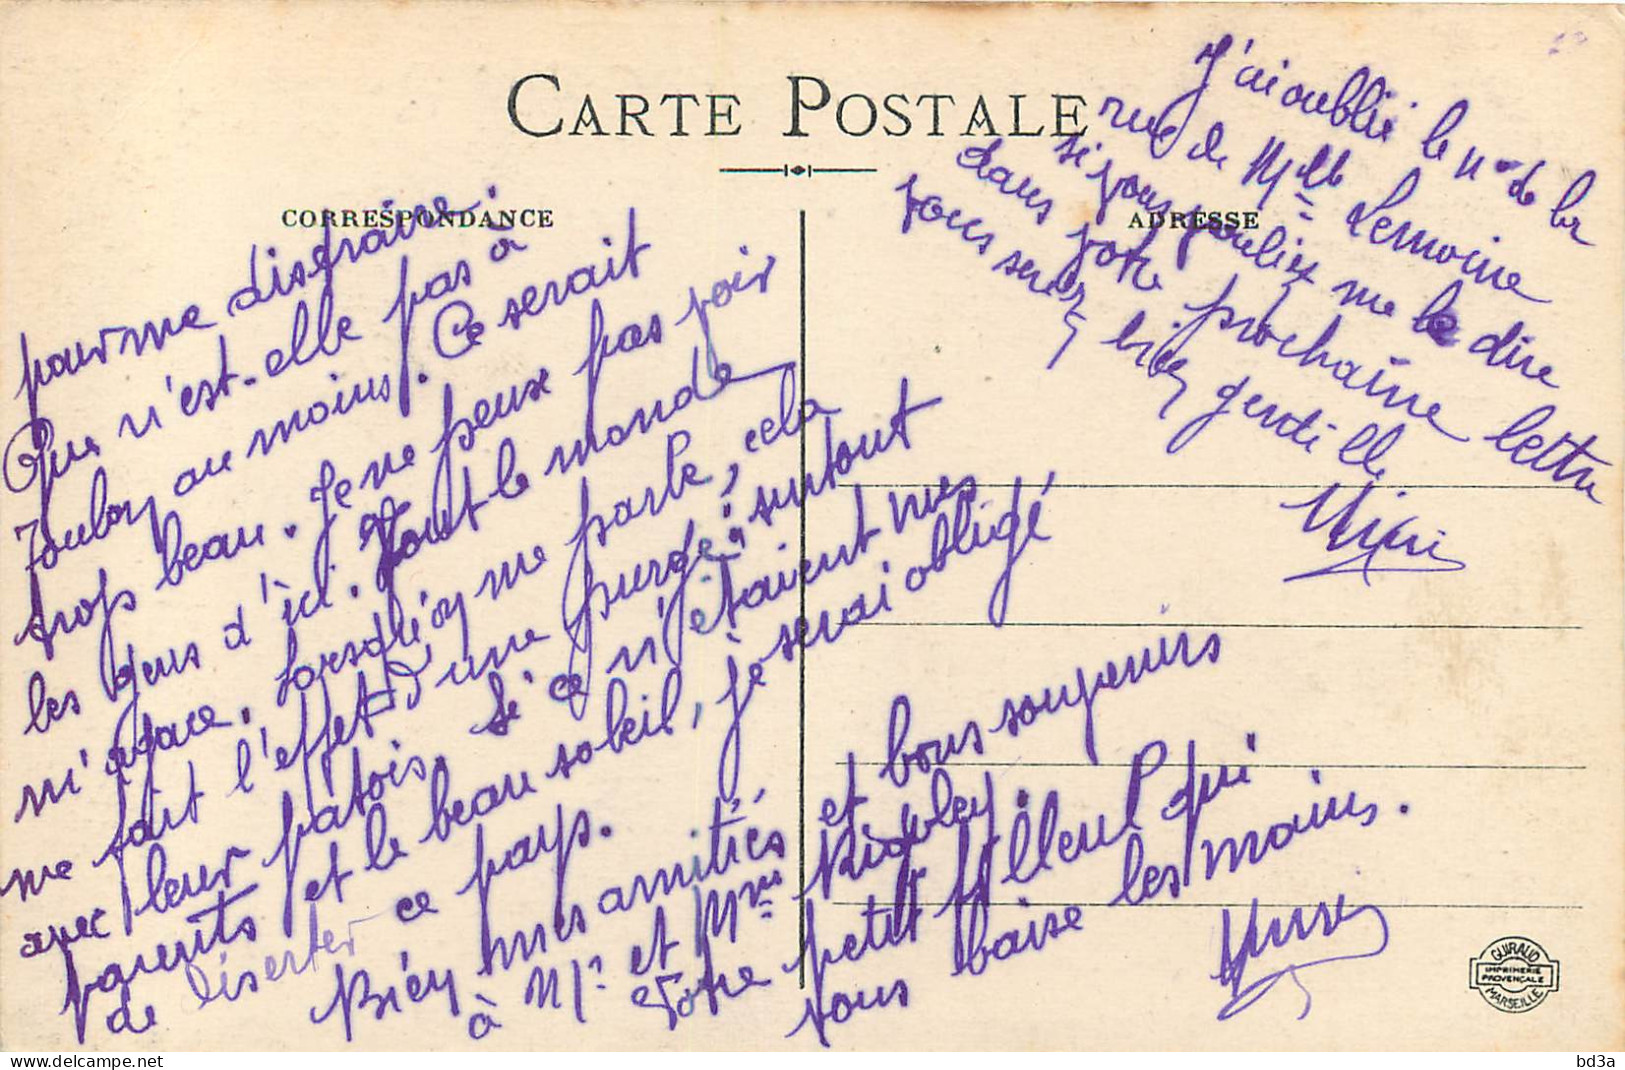 CARTE POSTALE
CORRESPONDANCE
ADRESSE
pour me distraire.
Que n'est-elle pas à
Toulon au moins. Ce serait
trop beau. Je ne peux pas voir
les gens d'ici. Tout le monde
m'agace. Lorsqu'on me parle, cela
me fait l'effet d'une purge, surtout
avec leur patois. Si ce n'étaient mes
parents et le beau soleil, je serai obligé
de déserter ce pays.
Bien mes amitiés et bons souvenirs
à Mr. et Mme.
Votre petit filleul qui
vous baise les mains.
J'ai oublié le no de la
rue de Mlle Lemoine
si vous vouliez me le dire
dans votre prochaine lettre
vous serez bien gentille
Mimi
GUIRAUD
IMPRIMERIE
PROVENÇALE
MARSEILLE
delcampe.net
bd3a